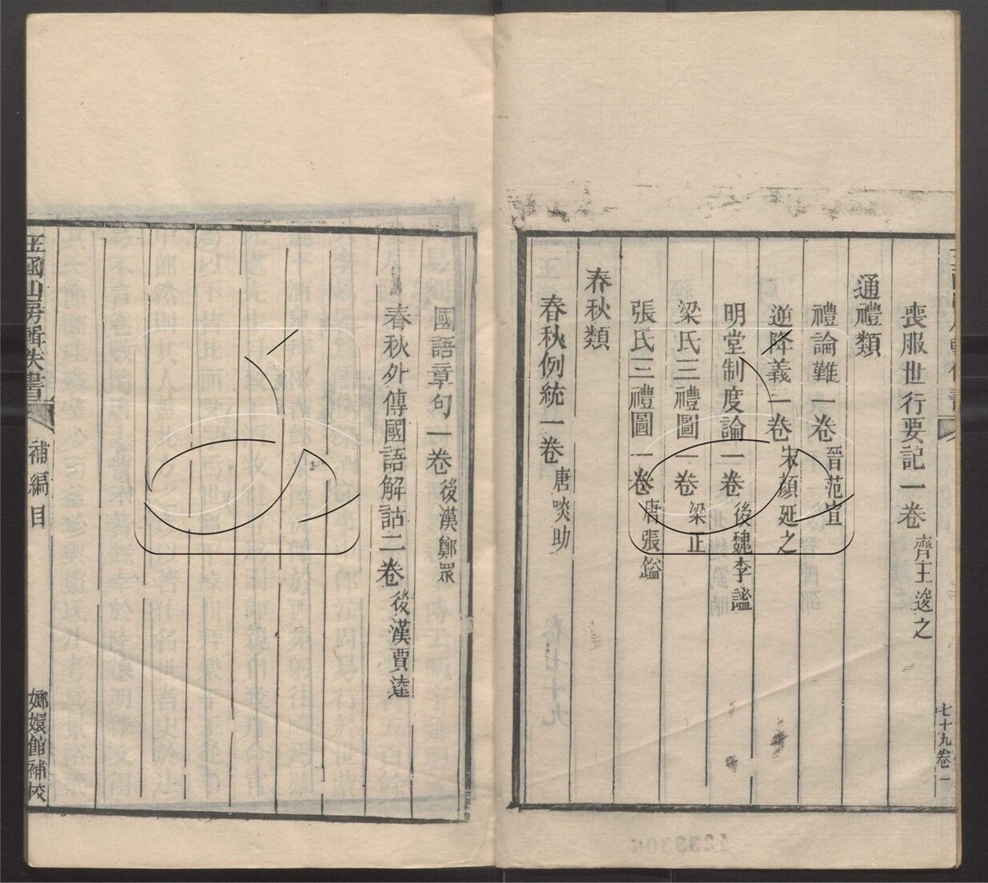 喪服世行要記一卷 齊王逡之
通禮類
禮論難一卷 晉范宣
逆降義一卷 宋顏延之
明堂制度論一卷 後魏李謐
梁氏三禮圖一卷 梁正
張氏三禮圖一卷 唐張鎰
春秋類
春秋例統一卷 唐啖助
七十九卷一
國語章句一卷 後漢鄭眾
春秋外傳國語解詁二卷 後漢賈逵
玉函山房輯佚書 補編目 嫏嬛館補校